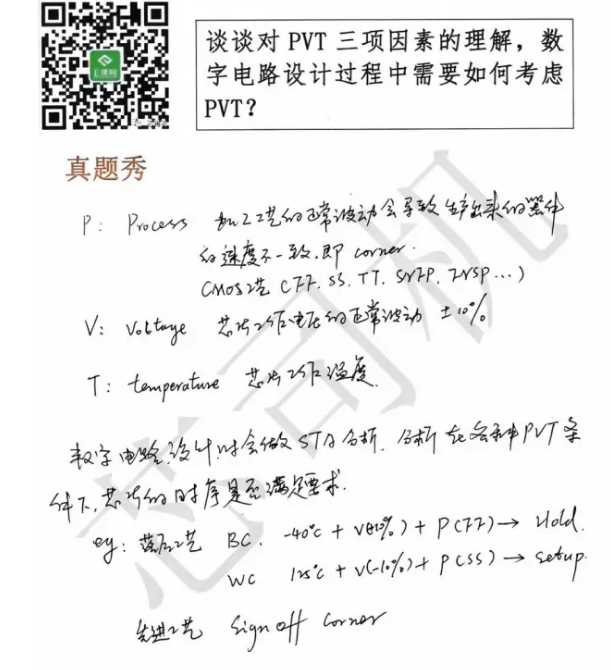 谈谈对 PVT 三项因素的理解，数
字电路设计过程中需要如何考虑
PVT？
真题秀
P: Process 加工工艺的正常波动会导致生产出来的器件
的速度不一致，即 corner.
CMOS工艺 (FF, SS, TT, SNFP, FNSP...)
V: Voltage 芯片工作电压的正常波动 ±10%
T: temperature 芯片工作温度.
数字电路设计时会做STA分析, 分析在各种PVT条
件下, 芯片的时序是否满足要求.
eg: 工艺 BC. -40℃ + V(+10%) + P(FF) → Hold.
WC 125℃ + V(-10%) + P(SS) → setup.
先进工艺 Sign off corner
芯司机